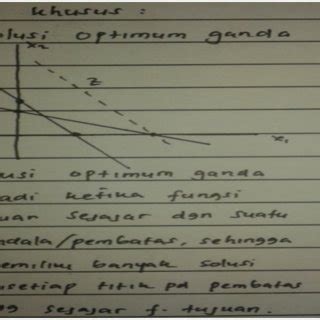 khusus :
olusi optimum ganda
x₂
z
x₁
usi optimum ganda
adi ketika fungsi
uan sejajar dgn suatu
ndala/pembatas, sehingga
emiliki banyak solusi
isetiap titik pd pembatas
g sejajar f. tujuan.